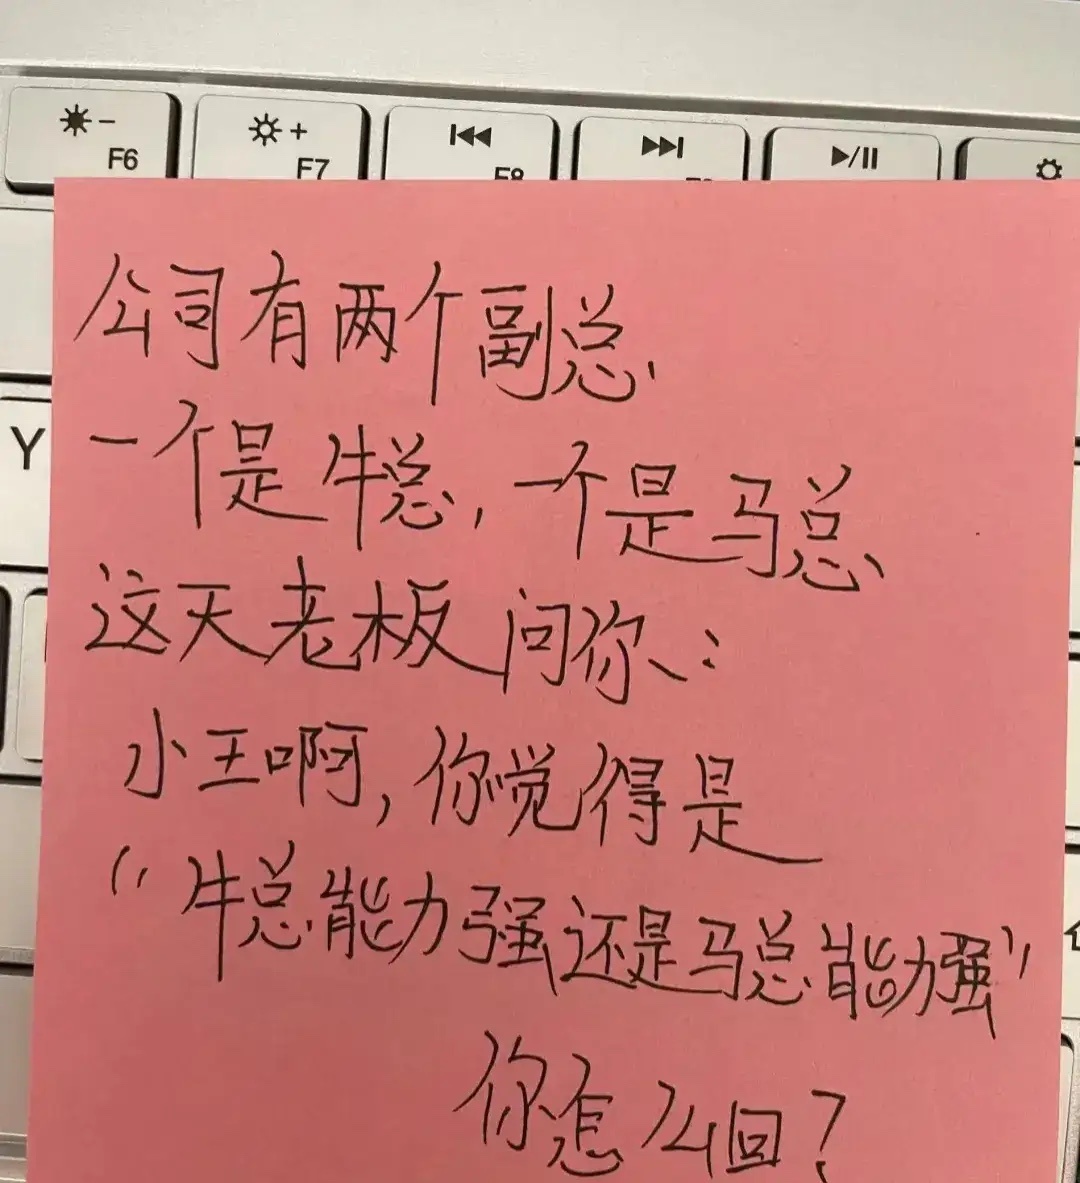 F6
F7
F8
Y
公司有两个副总
一个是牛总,一个是马总
这天老板问你:
小王啊,你觉得是
“牛总能力强还是马总能力强”
你怎么回?